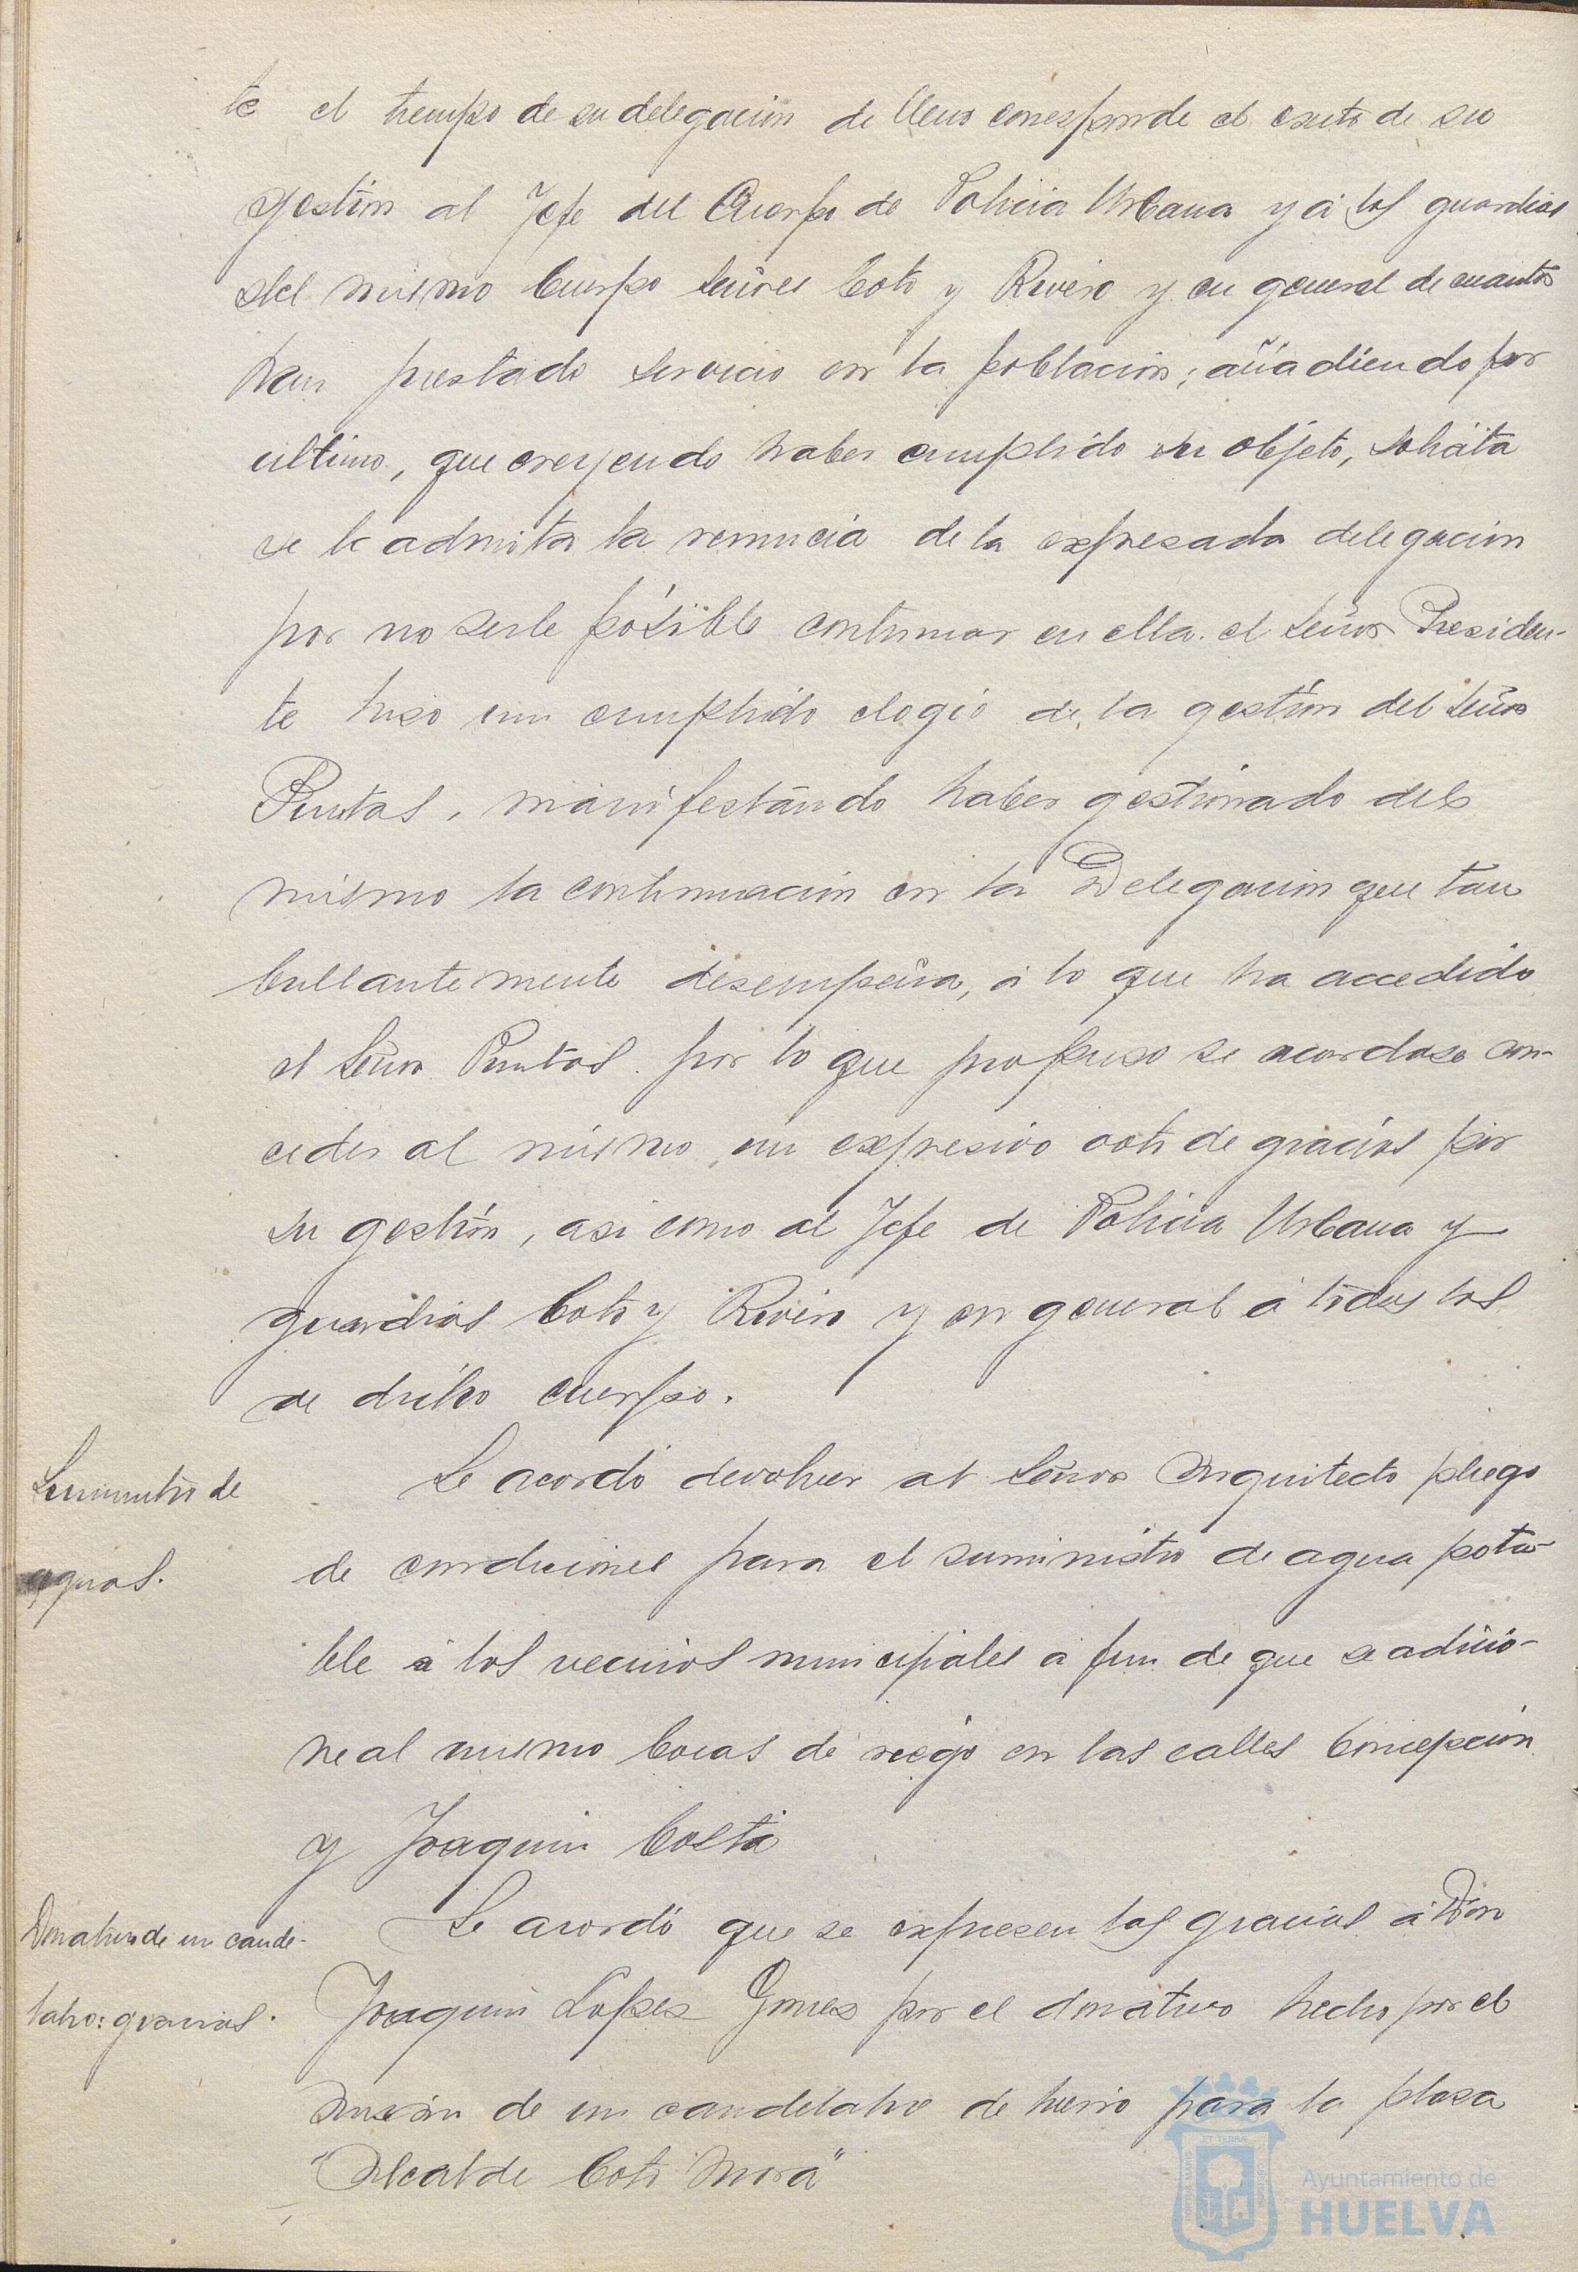 te el tiempo de su delegación de lleno corresponde el exito de su
gestión al Jefe del Cuerpo de Policia Urbana y á los guardias
del mismo Cuerpo Señores Coto y Rivero y en general de cuantos
han prestado servicio en la población; añadiendo por
ultimo, que creyendo haber cumplido su objeto, solicita
se le admita la renuncia de la expresada delegación
por no serle posible continuar en ella. el Señor Presiden-
te hizo un cumplido elogio de la gestión del Señor
Puntas, manifestando haber gestionado del
mismo la continuación en la Delegación que tan
brillantemente desempeña, á lo que ha accedido
el Señor Puntas. por lo que propuso se acordase con-
ceder al mismo un expresivo voto de gracias por
su gestión, asi como al Jefe de Policia Urbana y
guardias Coto y Rivero y en general á todos los
de dicho cuerpo.
Suministro de
aguas.
Se acordó devolver al Señor Arquitecto pliego
de condiciones para el suministro de agua pota-
ble á los vecinos municipales a fin de que se adicio-
ne al mismo bocas de riego en las calles Concepción
y Joaquin Costa
Donativo de un cande-
labro: gracias.
Se acordó que se expresen las gracias á Don
Joaquin Lopez Gomez por el donativo hecho por el
de un candelabro de hierro para la plaza
"Alcalde Coto Mora"
Ayuntamiento de
HUELVA